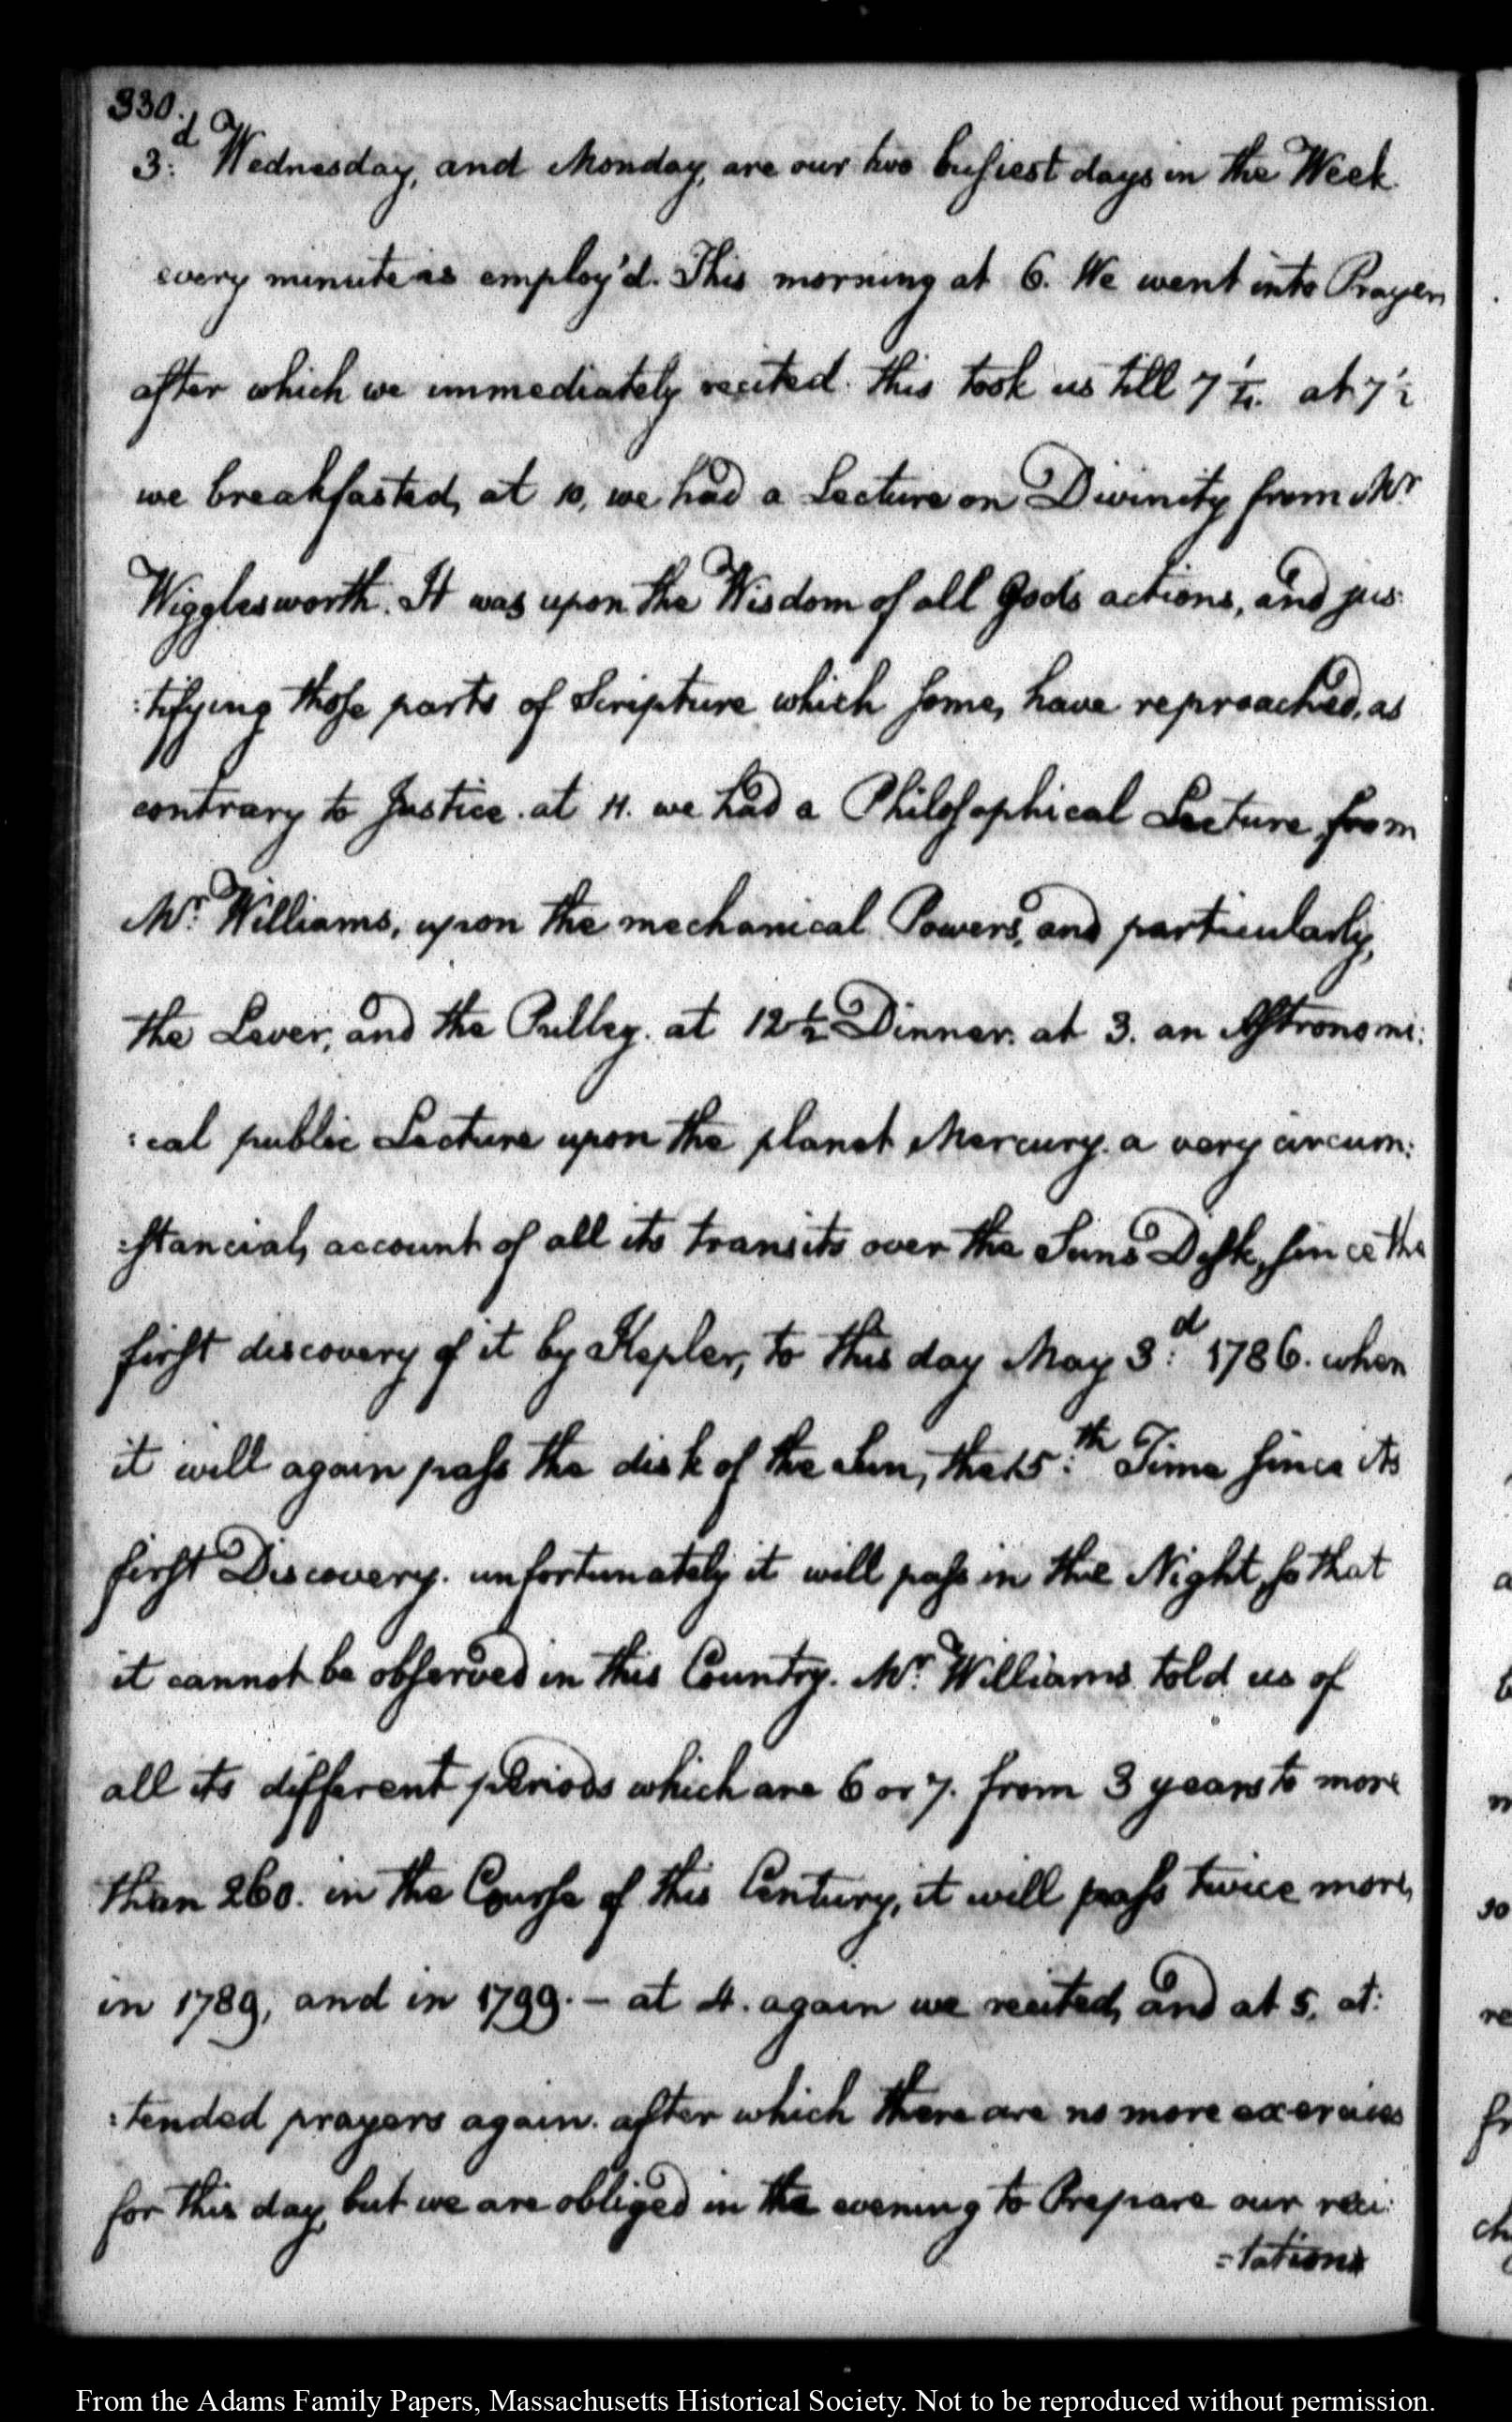 330.
3:d Wednesday, and Monday, are our two busiest days in the Week.
every minute is employ'd. This morning at 6. We went into Prayers
after which we immediately recited. this took us till 7 1/4. at 7 1/2
we breakfasted, at 10, we had a Lecture on Divinity from Mr
Wigglesworth. It was upon the Wisdom of all Gods actions, and jus:
:tifying those parts of Scripture which some, have reproached, as
contrary to Justice. at 11. we had a Philosophical Lecture, from
Mr. Williams, upon the mechanical Powers, and particularly,
the Lever, and the Pulley. at 12 1/2 Dinner. at 3. an Astronomi:
:cal public Lecture upon the planet Mercury. a very circum:
:stancial, account of all its transits over the Suns Disk, since the
first discovery of it by Kepler, to this day May 3:d 1786. when
it will again pass the disk of the Sun, the 15:th Time since its
first Discovery. unfortunately it will pass in the Night, so that
it cannot be observed in this Country. Mr. Williams told us of
all its different periods which are 6 or 7. from 3 years to more
than 260. in the Course of this Century, it will pass twice more,
in 1789, and in 1799. – at 4. again we recited, and at 5. at:
:tended prayers again. after which there are no more exercises
for this day, but we are obliged in the evening to Prepare our reci:
=tations
From the Adams Family Papers, Massachusetts Historical Society. Not to be reproduced without permission.